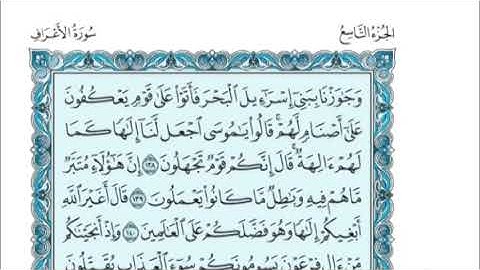 الجُزْءُ التَّاسِعُ
سُورَةُ الأَعْرَافِ
وَجَٰوَزْنَا بِبَنِىٓ إِسْرَٰٓءِيلَ ٱلْبَحْرَ فَأَتَوْا۟ عَلَىٰ قَوْمٍ يَعْكُفُونَ
عَلَىٰٓ أَصْنَامٍ لَّهُمْ ۚ قَالُوا۟ يَٰمُوسَى ٱجْعَل لَّنَآ إِلَٰهًا كَمَا
لَهُمْ ءَالِهَةٌ ۚ قَالَ إِنَّكُمْ قَوْمٌ تَجْهَلُونَ ١٣٨ إِنَّ هَٰٓؤُلَآءِ مُتَبَّرٌ
مَّا هُمْ فِيهِ وَبَٰطِلٌ مَّا كَانُوا۟ يَعْمَلُونَ ١٣٩ قَالَ أَغَيْرَ ٱللَّهِ
أَبْغِيكُمْ إِلَٰهًا وَهُوَ فَضَّلَكُمْ عَلَى ٱلْعَٰلَمِينَ ١٤٠ وَإِذْ أَنجَيْنَٰكُم
مِّنْ ءَالِ فِرْعَوْنَ يَسُومُونَكُمْ سُوٓءَ ٱلْعَذَابِ يُقَتِّلُونَ